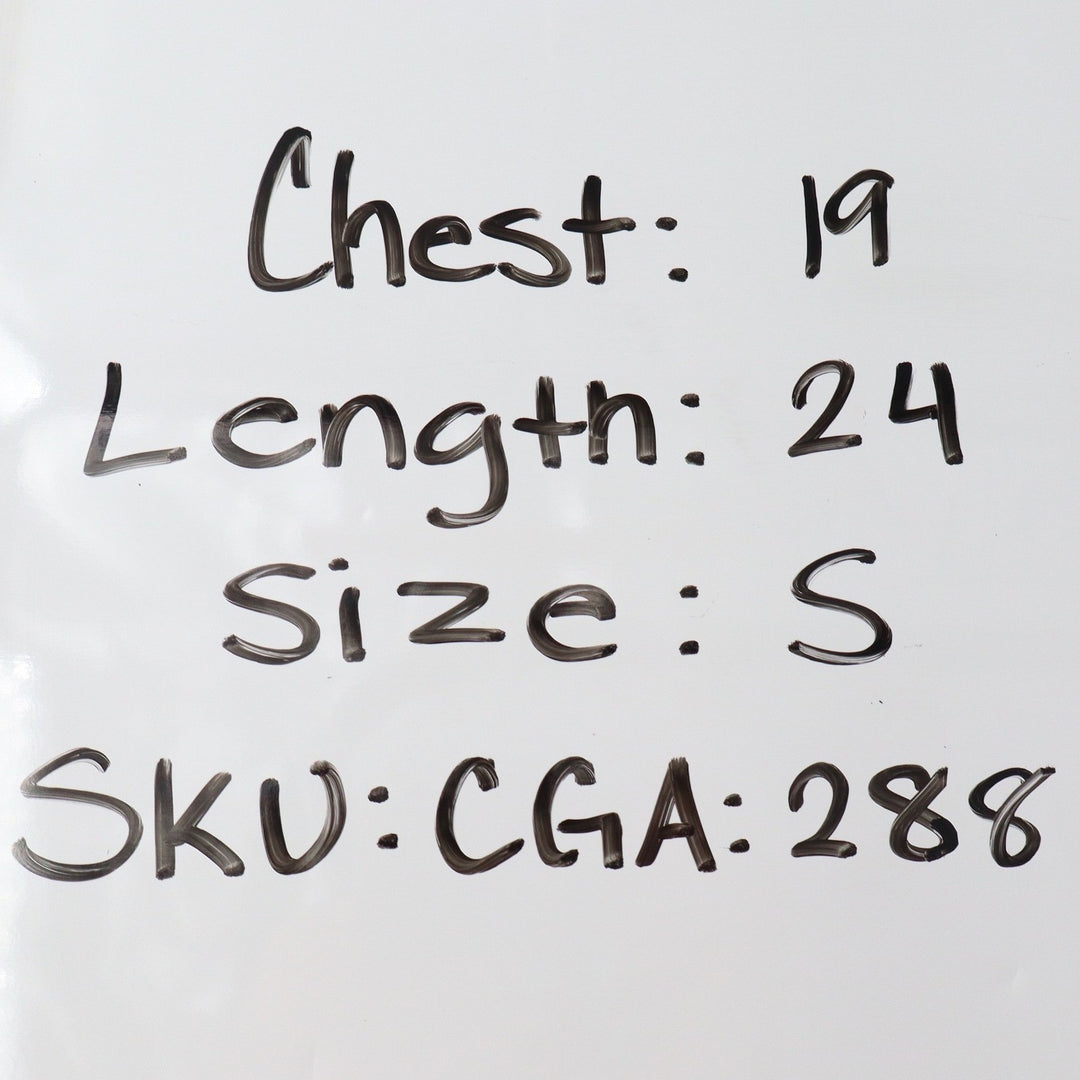 Chest: 19
Length: 24
Size: S
SKU: CGA: 288